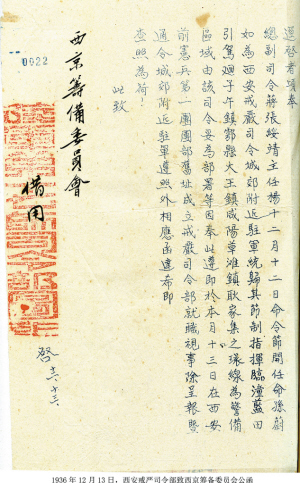 逕啓者頃奉
總副司令蔣張綏靖主任楊十二月十二日命令節開任命孫蔚
如為西安戒嚴司令城郊附近駐軍統歸其節制指揮臨潼藍田
引駕迴子午鎮鄠縣大王鎮咸陽草灘鎮耿家集之環線為警備
區域由該司令妥為部署等因奉此遵即於本月十三日在西安
前憲兵第一團團部舊址成立戒嚴司令部就職視事除呈報暨
通令城郊附近駐軍遵照外相應函達希即
查照為荷！
此致
西京籌備委員會
借用
啓 十二、十三、
0022
1936年12月13日，西安戒严司令部致西京筹备委员会公函